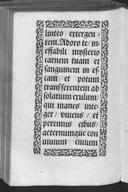 linteo extergen/
tem. Adoro te/ in
effabili mysterio
carnem tuam et
sanguinem in es
cam et potum
transferentem ad
solatium exulum:
qui manes inte
ger/ vivens/ et
perennis cibus:
aeternumque con
vivium civium